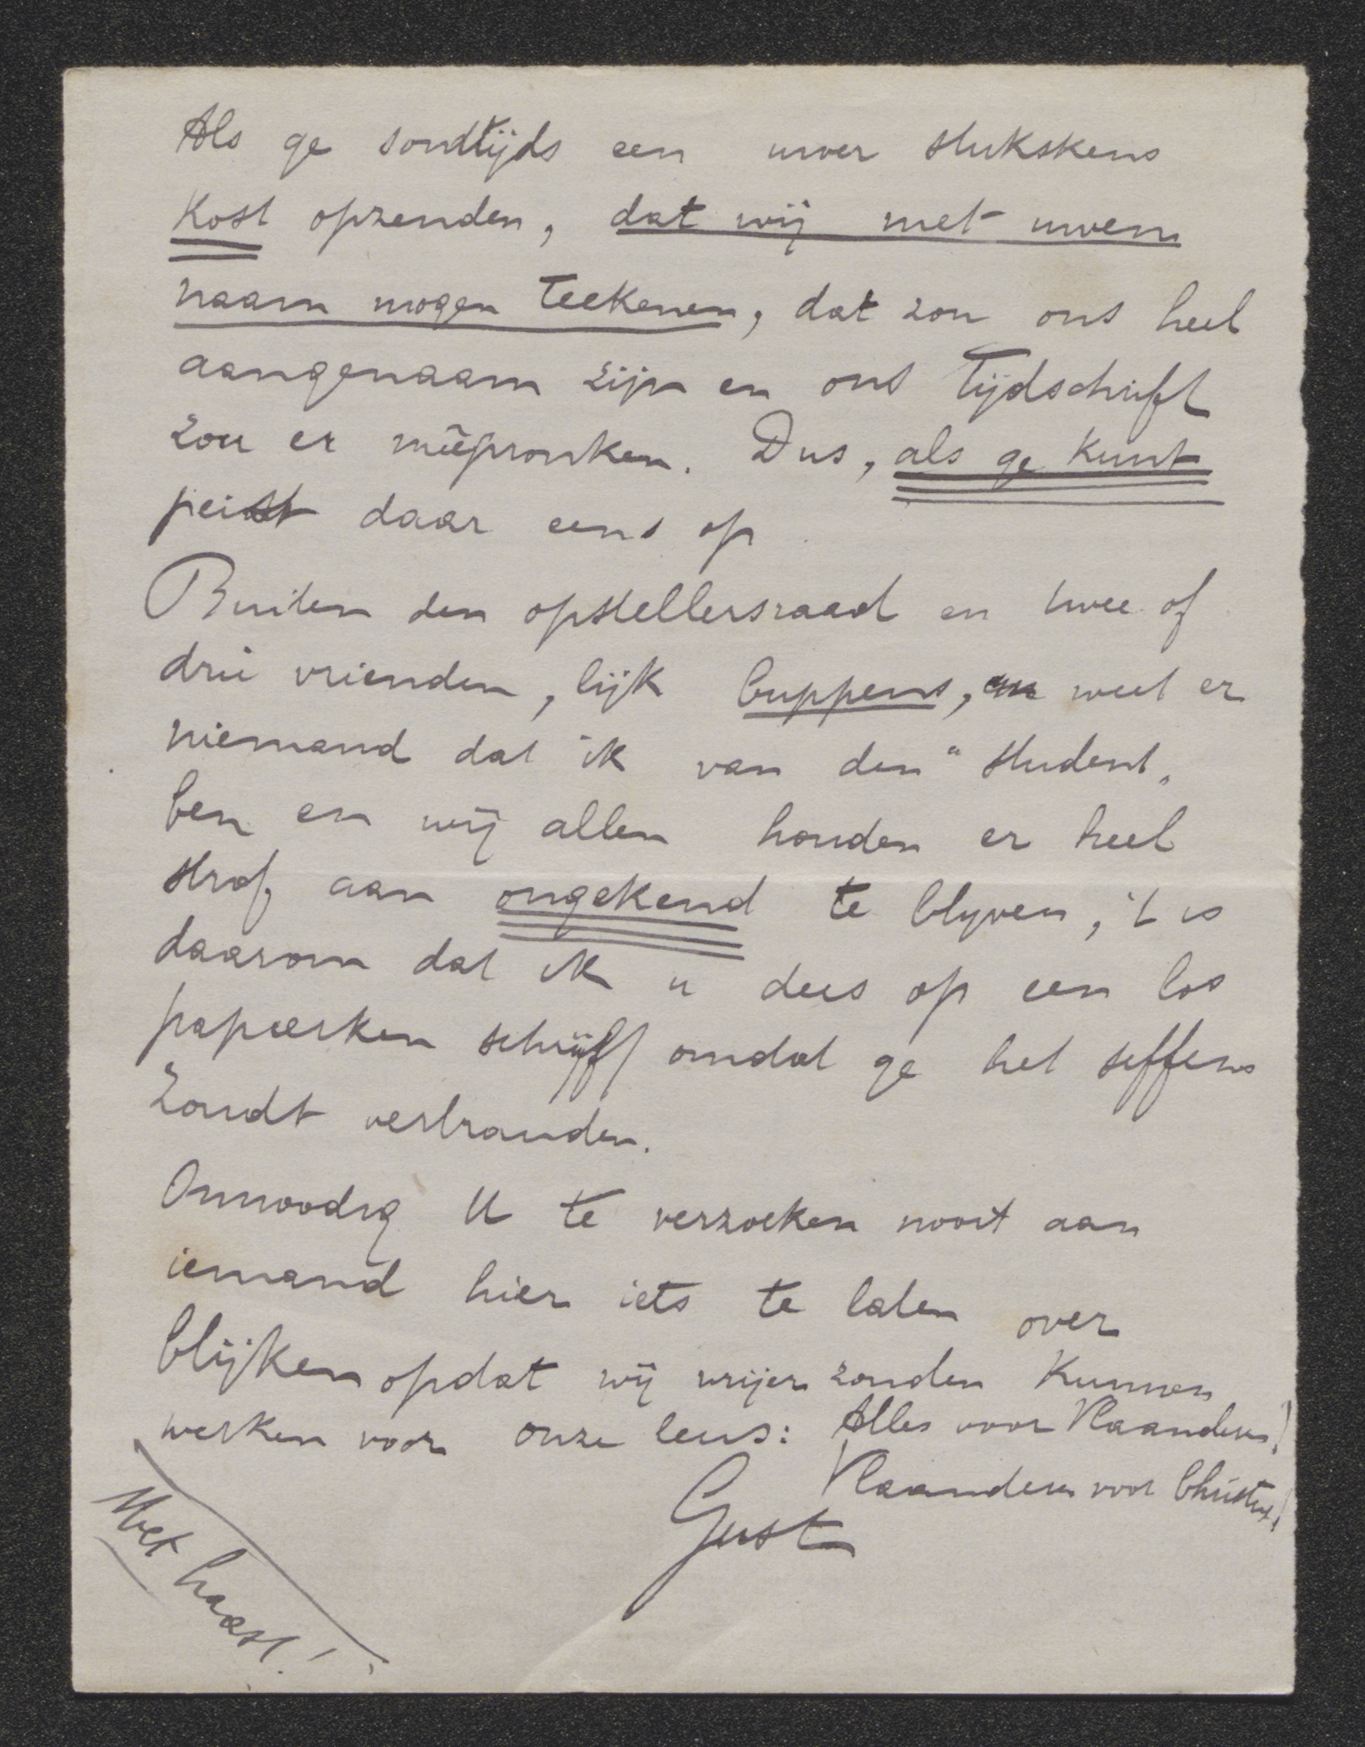 Als ge somdtijds een uwer stukskens
Kost opzenden, dat wij met uwen
naam mogen teekenen, dat zou ons heel
aangenaam zijn en ons Tijdschrift
zou er meêpronken. Dus, als ge kunt
peist daar eens op
Buiten den opstellersraad en twee of
drie vrienden, lijk Cuppens, weet er
niemand dat ik van den "student"
ben en wij allen houden er heel
straf aan ongekend te blijven, 't is
daarom dat ik u dees op een los
papierken schrijf omdat ge het seffens
zoudt verbranden.
Onnoodig U te verzoeken nooit aan
iemand hier iets te laten over
blijken opdat wij vrijer zouden kunnen
werken voor onze leus: Alles voor Vlaanderen!
Vlaanderen voor Christus!
Gust
Met haast!